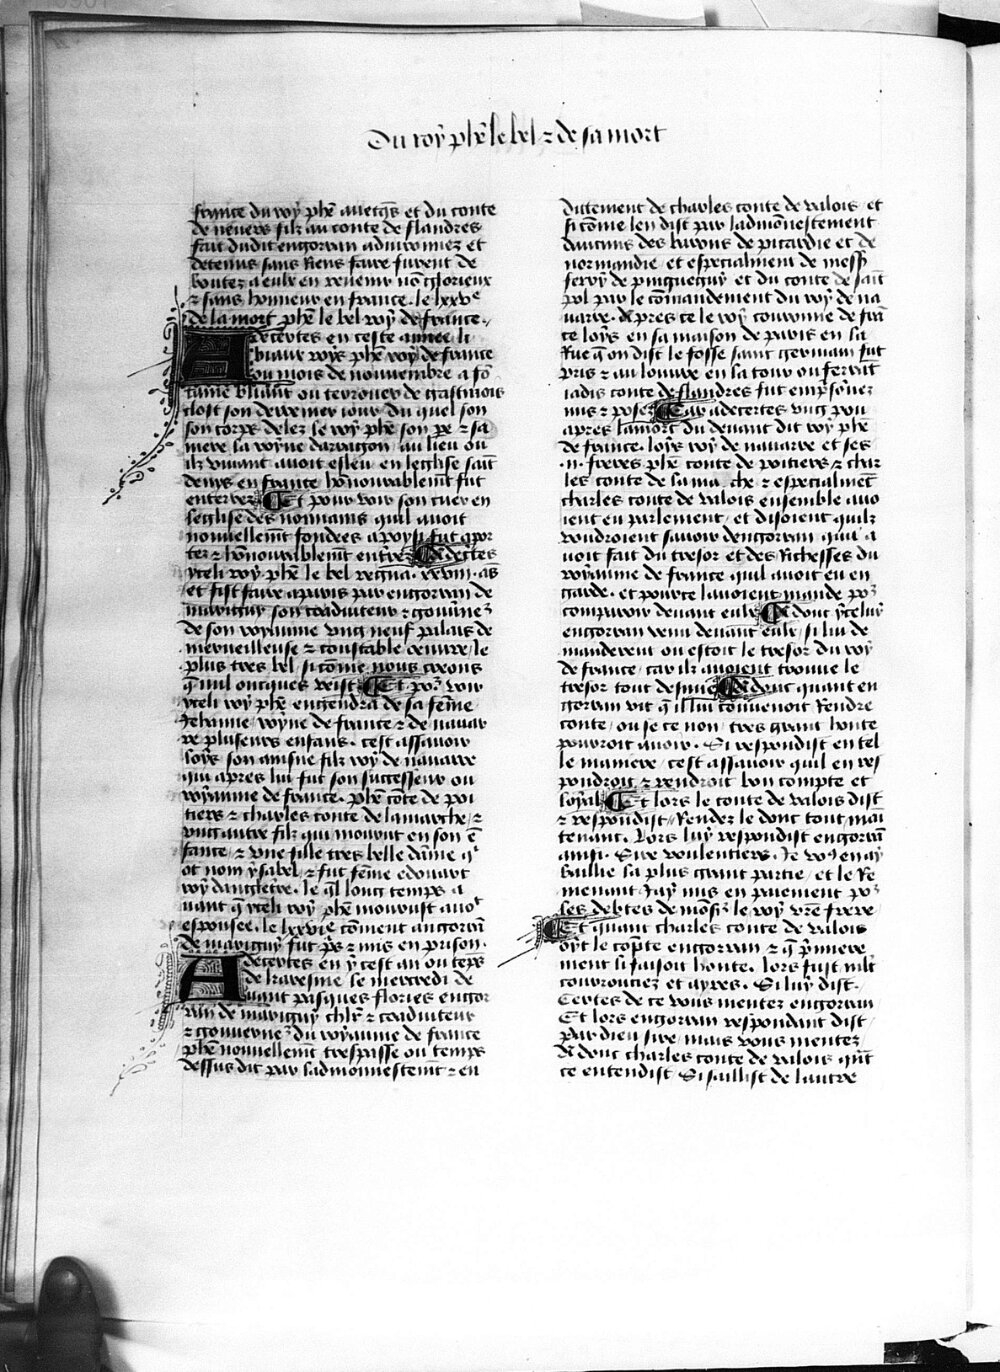 Du roy phē le bel ⁊ de sa mort
france du roy phē auecq̄s et du conte
de neuers filz au conte de flandres
fait dudit engorran aduironnez et
detenus sans riens faire furent de
boutez a eulx en reuenir nō glorieux
⁊ sans honneur en france. le lxxvᵉ
de la mort phē le bel roy de france.
Adecertes en ceste annee li
biaux roys phē roy de france
ou mois de nouuembre a fō
taine bliaut ou terrouer de gastinois
clost son derremer iour du quel son
son corps delez le roy phē son pe ⁊ sa
mere la royne darragon au lieu ou
ilz viuant auoit esleu en leglise saīt
denys en france hōnourablemt̄ fut
enterrez ¶ Et pour voir son cuer en
leglise des nonnains quil auoit
nouuellemt̄ fondees a poysi fut apor
tez ⁊ hōnourablemt̄ entrez ¶ Adecertes
yceli roy phē le bel regna .xxviii. as̄
et fist faire a paris par engorran de
marigny son coadiuteur ⁊ gouūnez
de son royaume vng neuf palais de
merueilleuse ⁊ constable oeuure / le
plus tres bel si cōme nous creons
q̄ nul oncques veist ¶ Et poᷣ voir
yceli roy phē engendra de sa feme
Jehanne royne de france ⁊ de nauar
re pluseurs enfans. cest assauoir
loys son ainsne filz roy de nauarre
qui apres lui fut son successeur ou
royaume de france. phē cōte de poi
tiers ⁊ charles conte de la marche / ⁊
vng autre filz qui mourut en son ē
fance / ⁊ vne fille tres belle dame qͥ
ot nom ysabel / ⁊ fut feme edouart
roy dangleterre. le q̄l long temps a
uant q̄ yceli roy phē mourust auoᵗ
espousee. le lxxviᵉ cōment angorrā
de marigny fut pͥs ⁊ mis en prison.
Adecertes en ycest an ou tēps
de karesme le mercredi de
uant pasques flories engor
ran de marigny chlr̄ ⁊ coadiuteur
⁊ gouuerneᷣ du royaume de france
phē nouuellemt̄ trespasse ou temps
dessus dit par ladmonnestemt̄ ⁊ en
ditement de charles conte de valois et
si cōme len dist par ladmōnestement
daucuns des barons de picardie et de
normandie et especialment de mess̄
ferry de pinguegny et du conte de saīt
pol par le cōmandement du roy de na
uarre. Apres ce le roy couronne de frā
ce loys en sa maison de paris en la
Rue q̄ on dist le fosse saint germain fut
pris ⁊ au louure en la tour ou ferrāt
iadis conte de flandres fut emprisōnez
mis ⁊ posez ¶ Car adecertes vng pou
apres la mort du deuant dit roy phē
de france. loys roy de nauarre et ses
.ii. freres phē conte de poitiers ⁊ char
les conte de la marche ⁊ especialmēt
charles conte de valois ensemble auo
ient en parlement / et disoient quilz
voudroient sauoir dengorran qui a
uoit fait du tresor et des richesses du
royaume de france quil auoit eu en
garde. et pource lauoient mande poᷣ
comparoir deuant eulx ¶ A dont yceluy
engorran venu deuant eulx / si lui de
manderent ou estoit le tresor du roy
de france / car ilz auoient trouue le
tresor tout desnue ¶ A donc quant en
gorran vit q̄ il lui conuenoit rendre
conte / ou se ce non / tres grant honte
pourroit auoir. Si respondist en tel
le maniere / cest assauoir quil en res
pondroit ⁊ rendroit bon compte et
loyal ¶ Et lors le conte de valois dist
⁊ respondist / Rendez le dont tout mai
tenant. Lors luy respondist engorrā
ainsi. Sire voulentiers. Je voꝰ en ay
baillie la plus grant partie / et le Re
menant jay mis en paiement poᷣ
les debtes de mōsᷣ le roy vr̄e frere
¶ Et quant charles conte de valois
oyt le cop̄te engorran ⁊ q̄ pͥmiere
ment li faisoit honte. lors fust mlt̄
courroucíez et ayres. Si luy dist.
Certes de ce vous mentez engorran
Et lors engorran respondant dist /
Par dieu sire / mais vous mentez.
A donc charles conte de valois qn̄t
ce entendist Si saillist de lautre